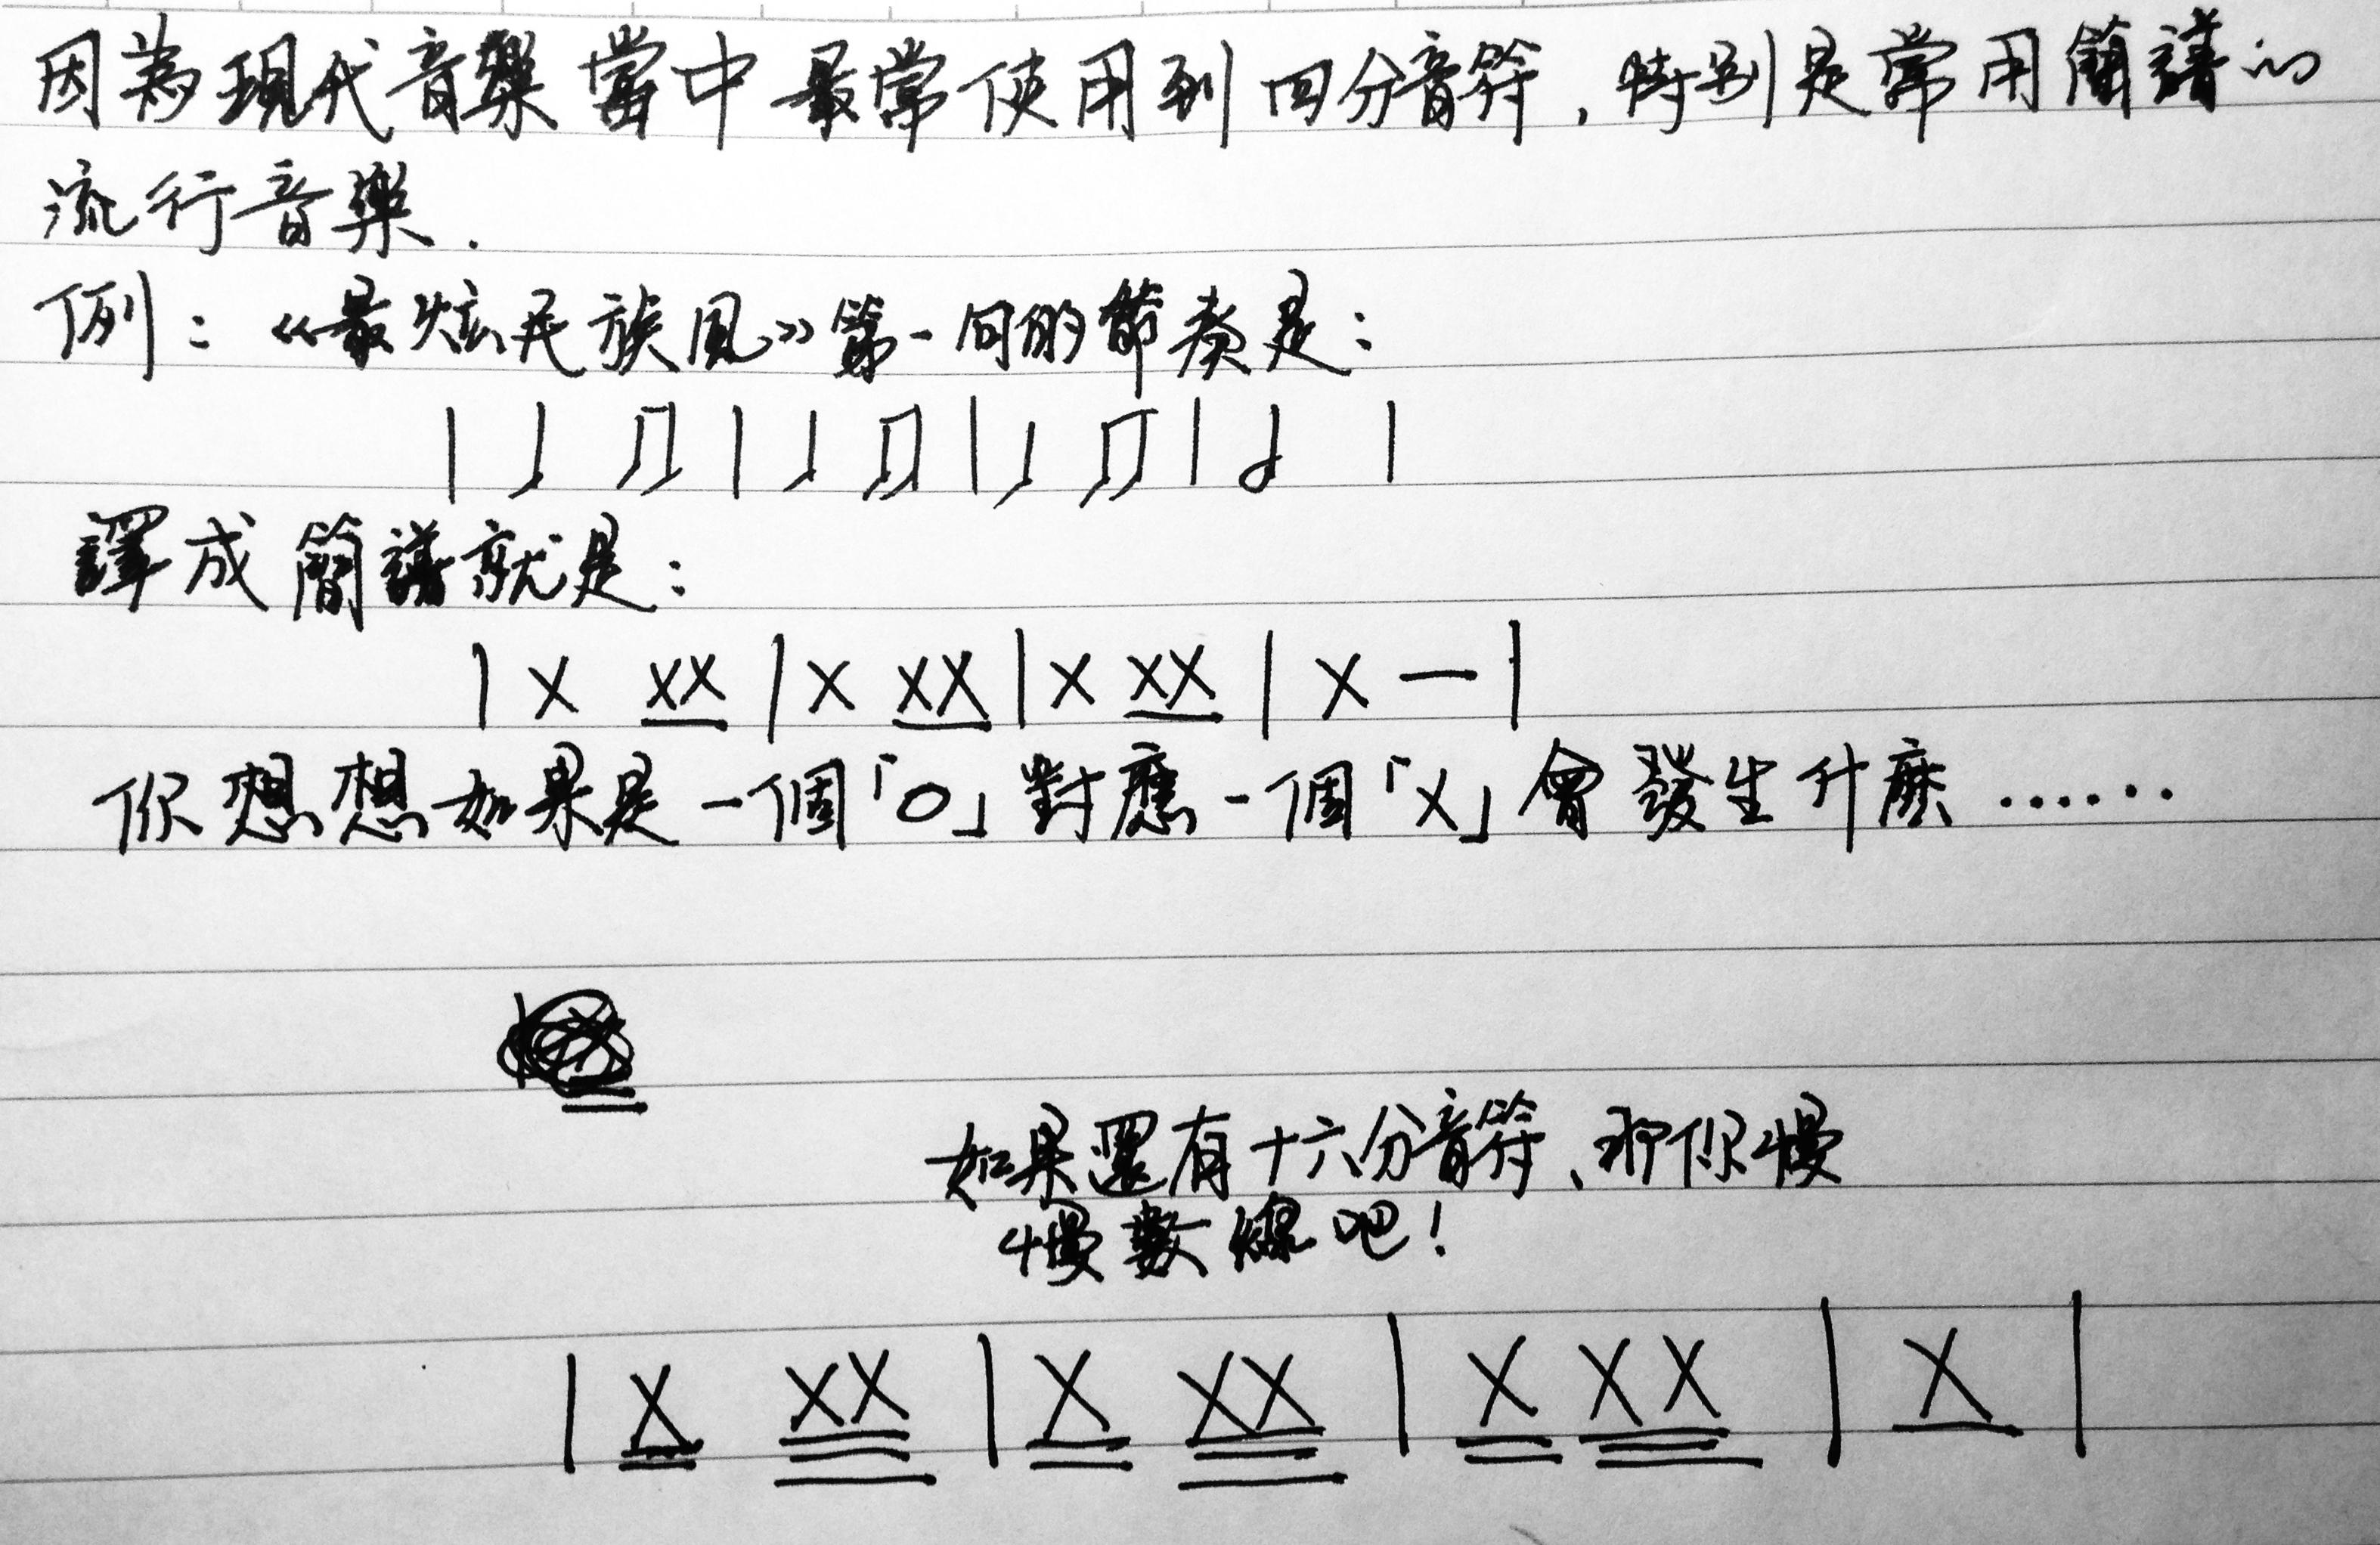 因為現代音樂當中最常使用到四分音符，特別是常用簡譜的
流行音樂.
例：《最炫民族風》第一句的節奏是：
| ♩ ♫ | ♩ ♫ | ♩ ♫ | 𝅗𝅥 |
譯成簡譜就是：
| X XX | X XX | X XX | X — |
你想想如果是一個「O」對應一個「X」會發生什麽……
如果還有十六分音符、那你慢
慢數線吧！
| X XX | X XX | X XX | X |